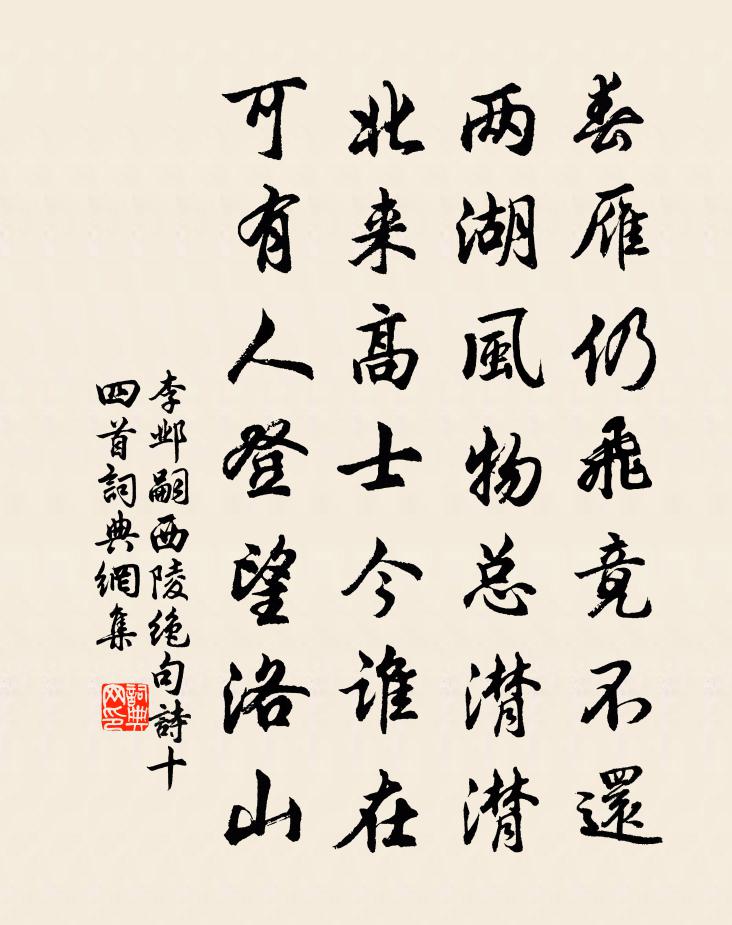 春雁仍飛竟不還
两湖風物总潸潸
北来高士今谁在
可有人登望洛山
李邺嗣西陵絶句詩十
四首詞典網集
詞典
网印